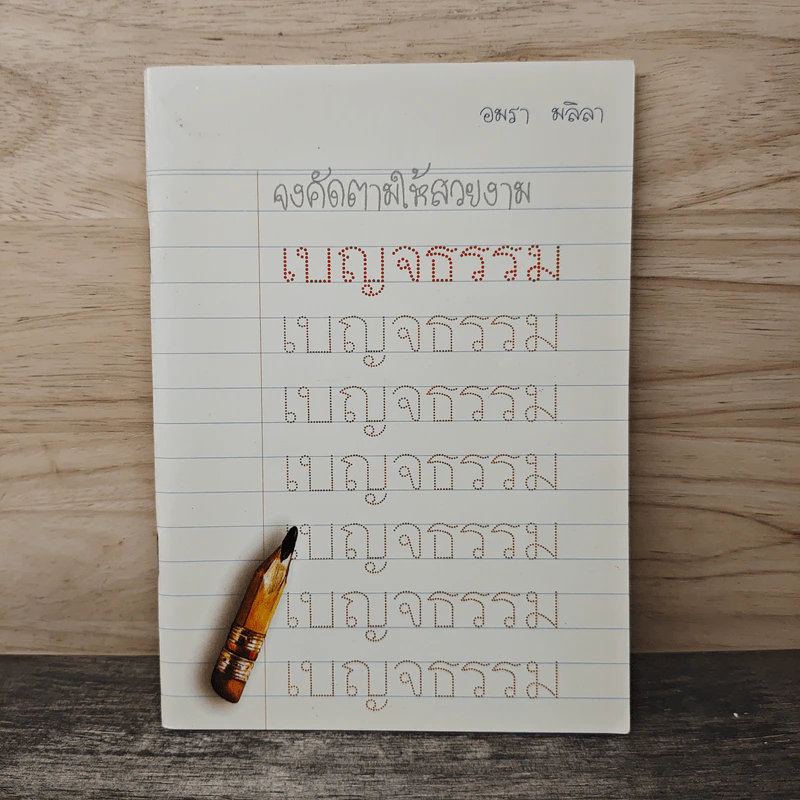 อมรา มลิลา
จงคัดตามให้สวยงาม
เบญจธรรม
เบญจธรรม
เบญจธรรม
เบญจธรรม
เบญจธรรม
เบญจธรรม
เบญจธรรม